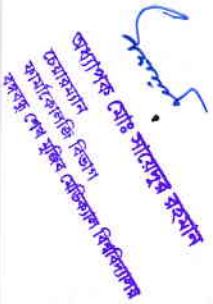 অধ্যাপক মোঃ সায়েদুর রহমান
চেয়ারম্যান
ফার্মাকোলজি বিভাগ
বঙ্গবন্ধু শেখ মুজিব মেডিক্যাল বিশ্ববিদ্যালয়